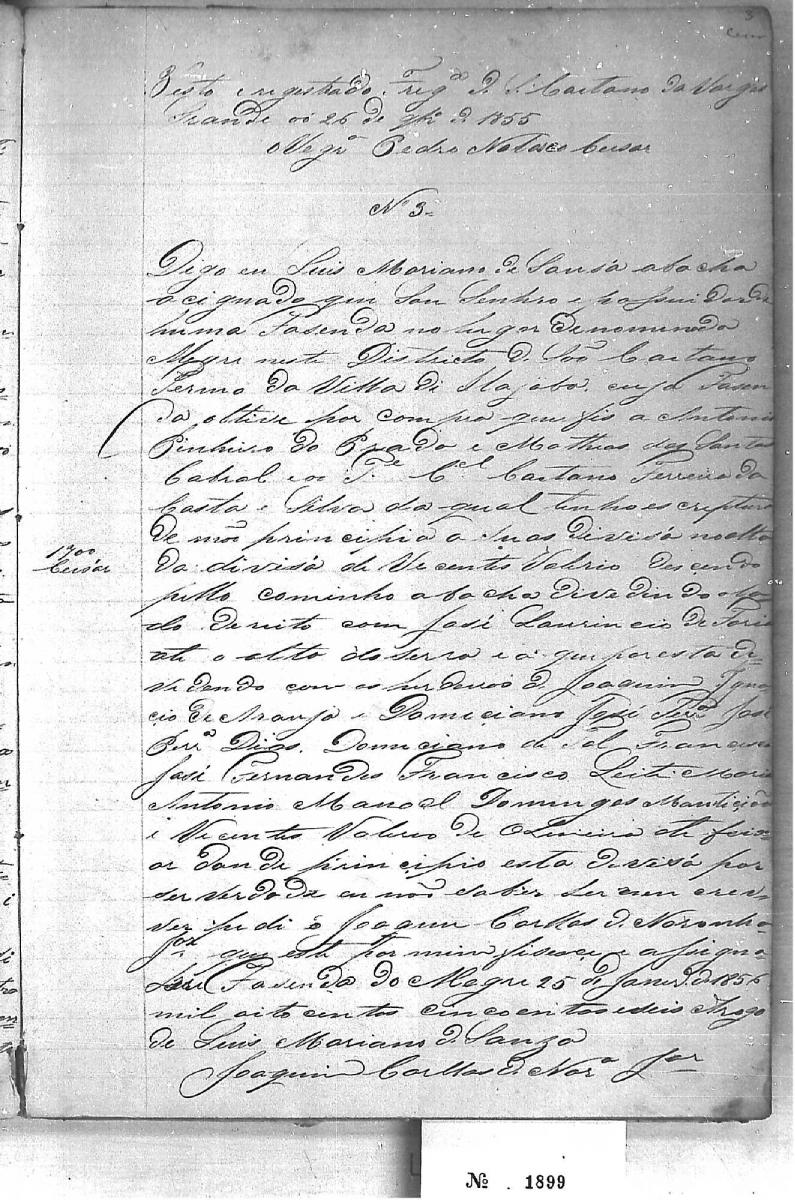 3
Visto e registrado. Freg.ª d. S. Caetano da Vargem
Grande aos 26 de 9br.º d. 1855
O Vegr.º Pedro Nolasco Cesar
Nº 3-
Digo eu Luis Mariano de Sousa abacho
acignado que Sou Senhro e possuidor de
huma Fasenda no lugar denominado
Magre neste Districto d. São Caetano
Termo da Villa di Itajuba. cuja Fasen
da obtive por compra que fis a Antonio
Pinhiro do Prado e Matheos dos Santos
Cabral e oo Te. Cel. Caetano Ferreira da
Costa e Silva da qual tinho escriptura
de mão principia a suas divisá no alto
da divisá de Vicente Valerio descendo
pello cominho abacho devedindo
do dereito com José Laurincio de Faria
ate o alto do serro e a qui por esta de-
vedendo com os herdeiros d. Joaquim Igna
cio de Araujo e Domiciano José Per.ª José
Per.ª Dias. Domiciano de Tal Francisco
José Fernandes Francisco Leite Maria
Antonio Manoel Domingos
i Vicente Valerio de Oliveira ate
ar donde principio esta devisá por
ser verdade eu não saber ler nem crev-
ver pedi o Joaquim Carllos d. Noronha
Jor. que este por mim fisece e asigna
Fasenda do Magre 25 de Janr.º d. 1856
mil oito centos cincoentos e seis Arogo
de Luis Mariano d. Souza
Joaquim Carllos d. Nor.ª Jor
1700
Cesár
Nº . 1899